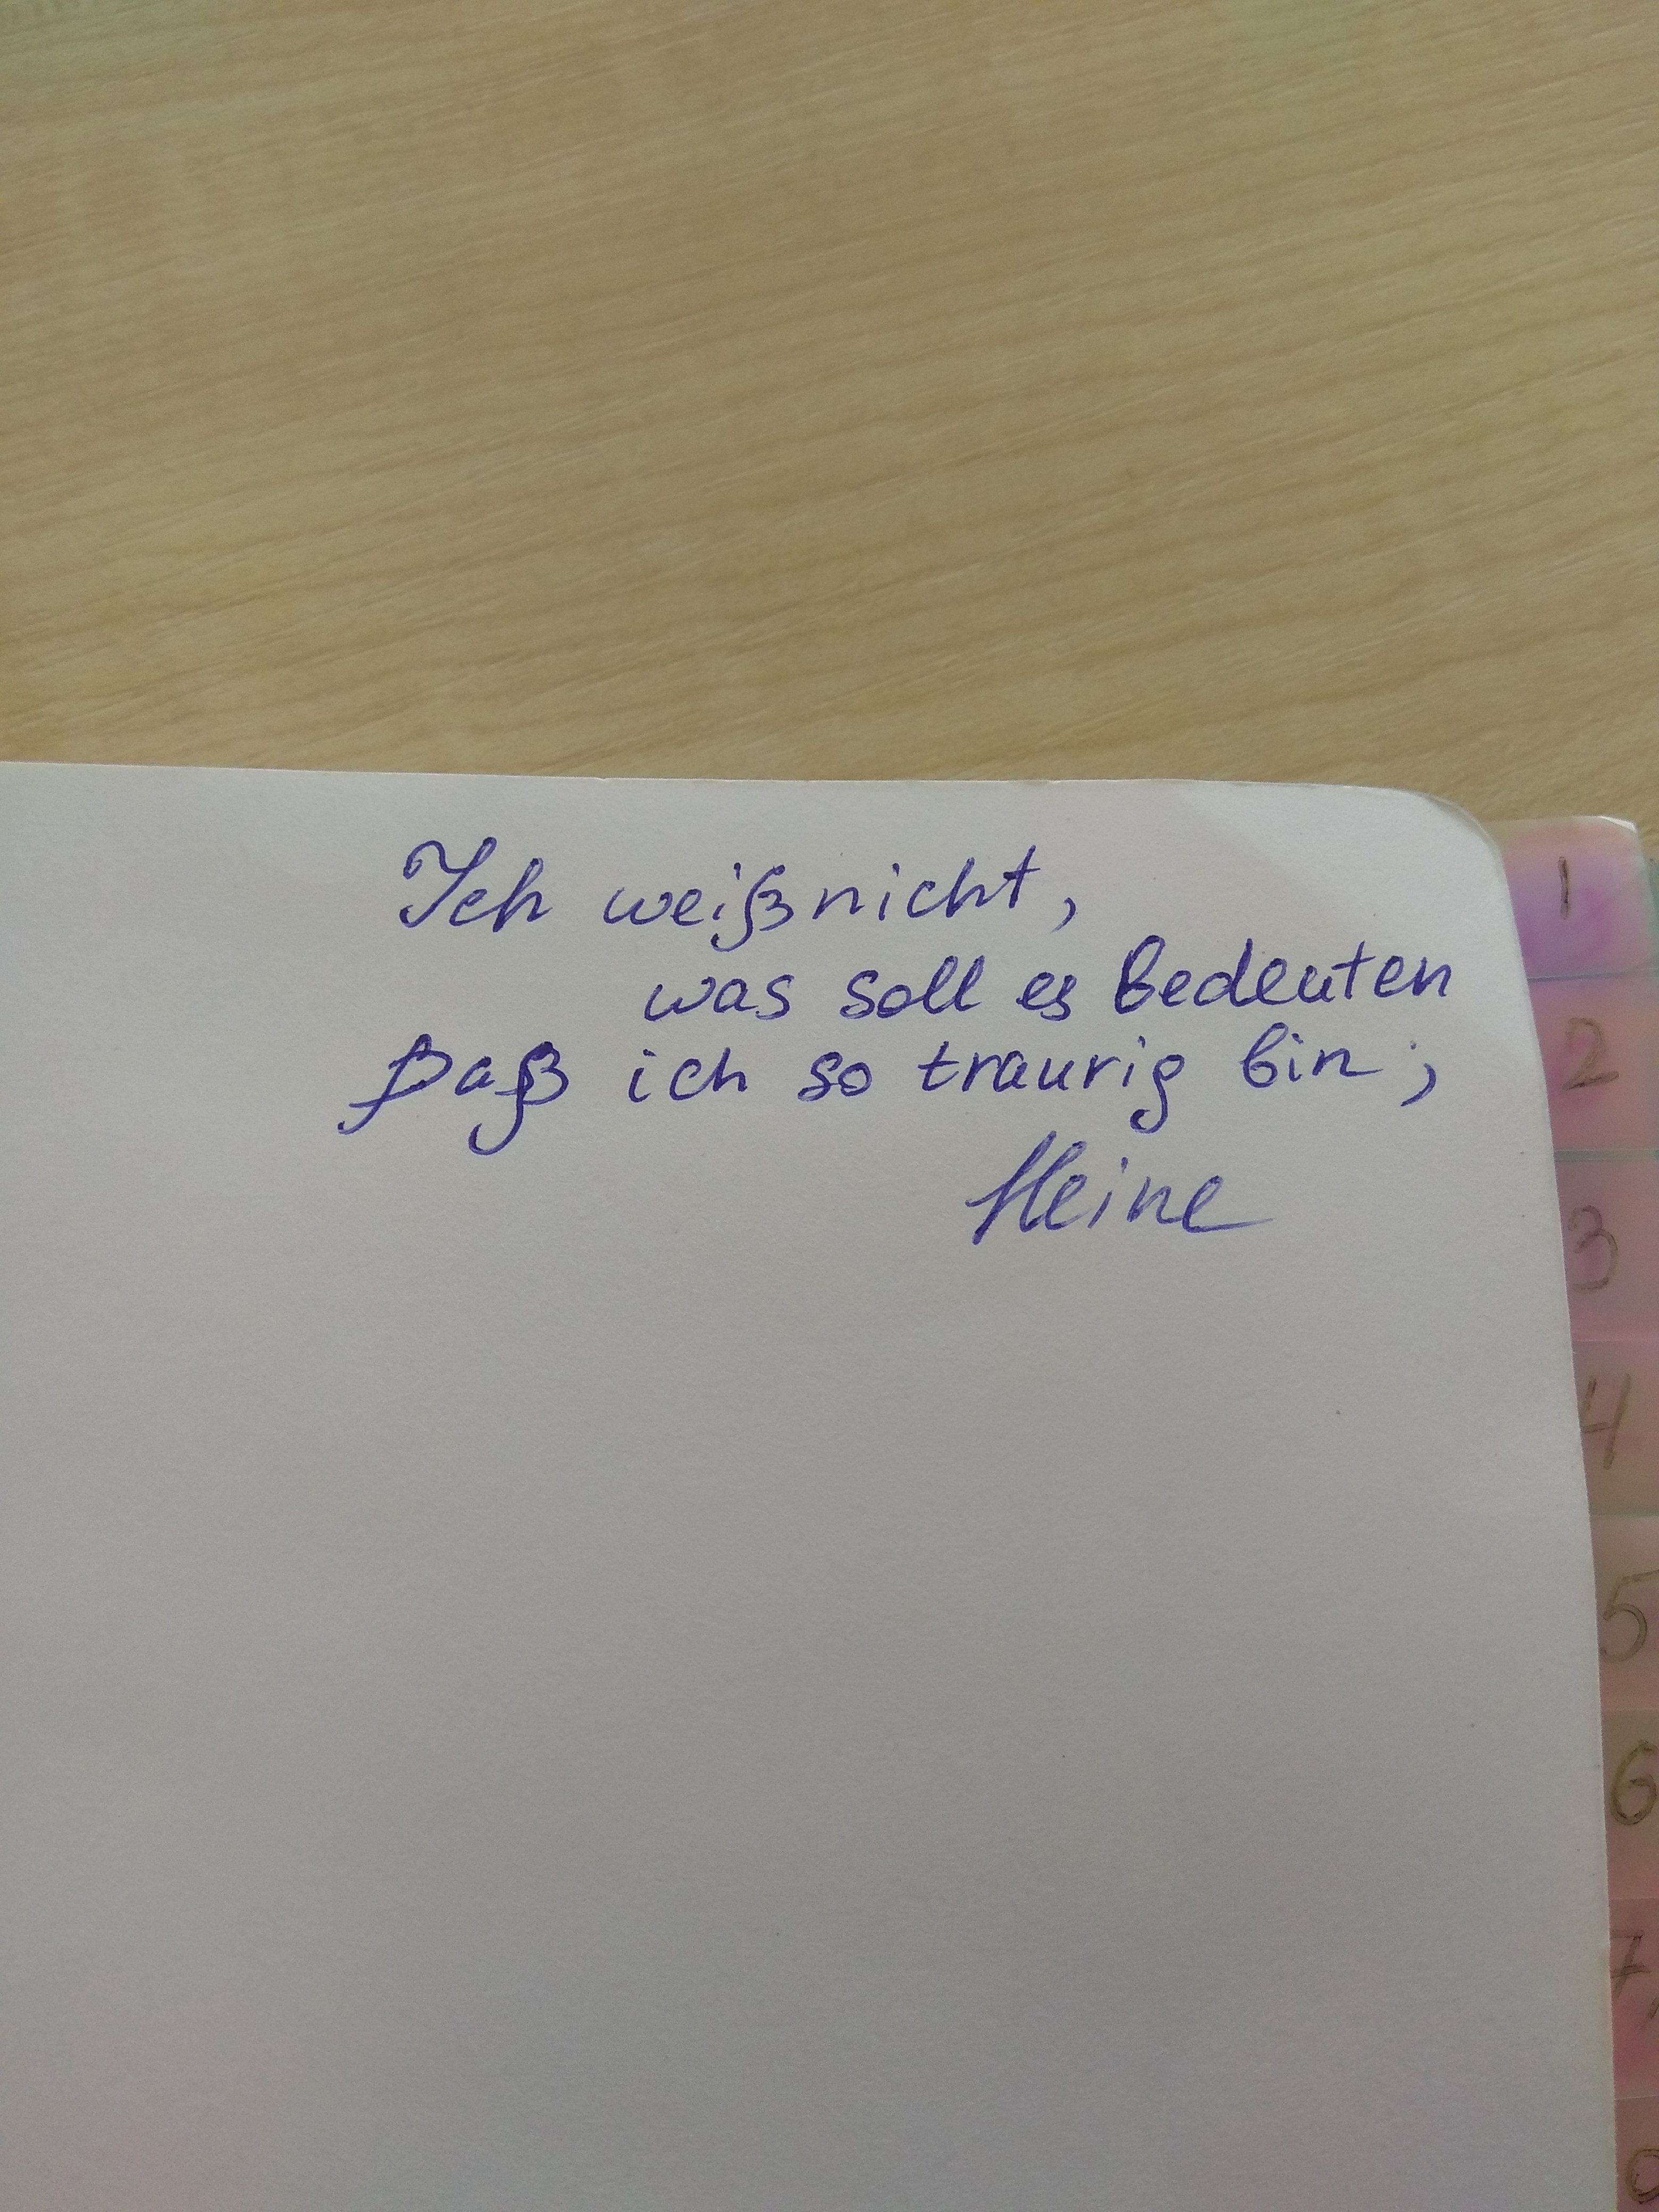 Ich weiß nicht,
was soll es bedeuten
Daß ich so traurig bin;
Heine
1
2
3
4
5
6
7